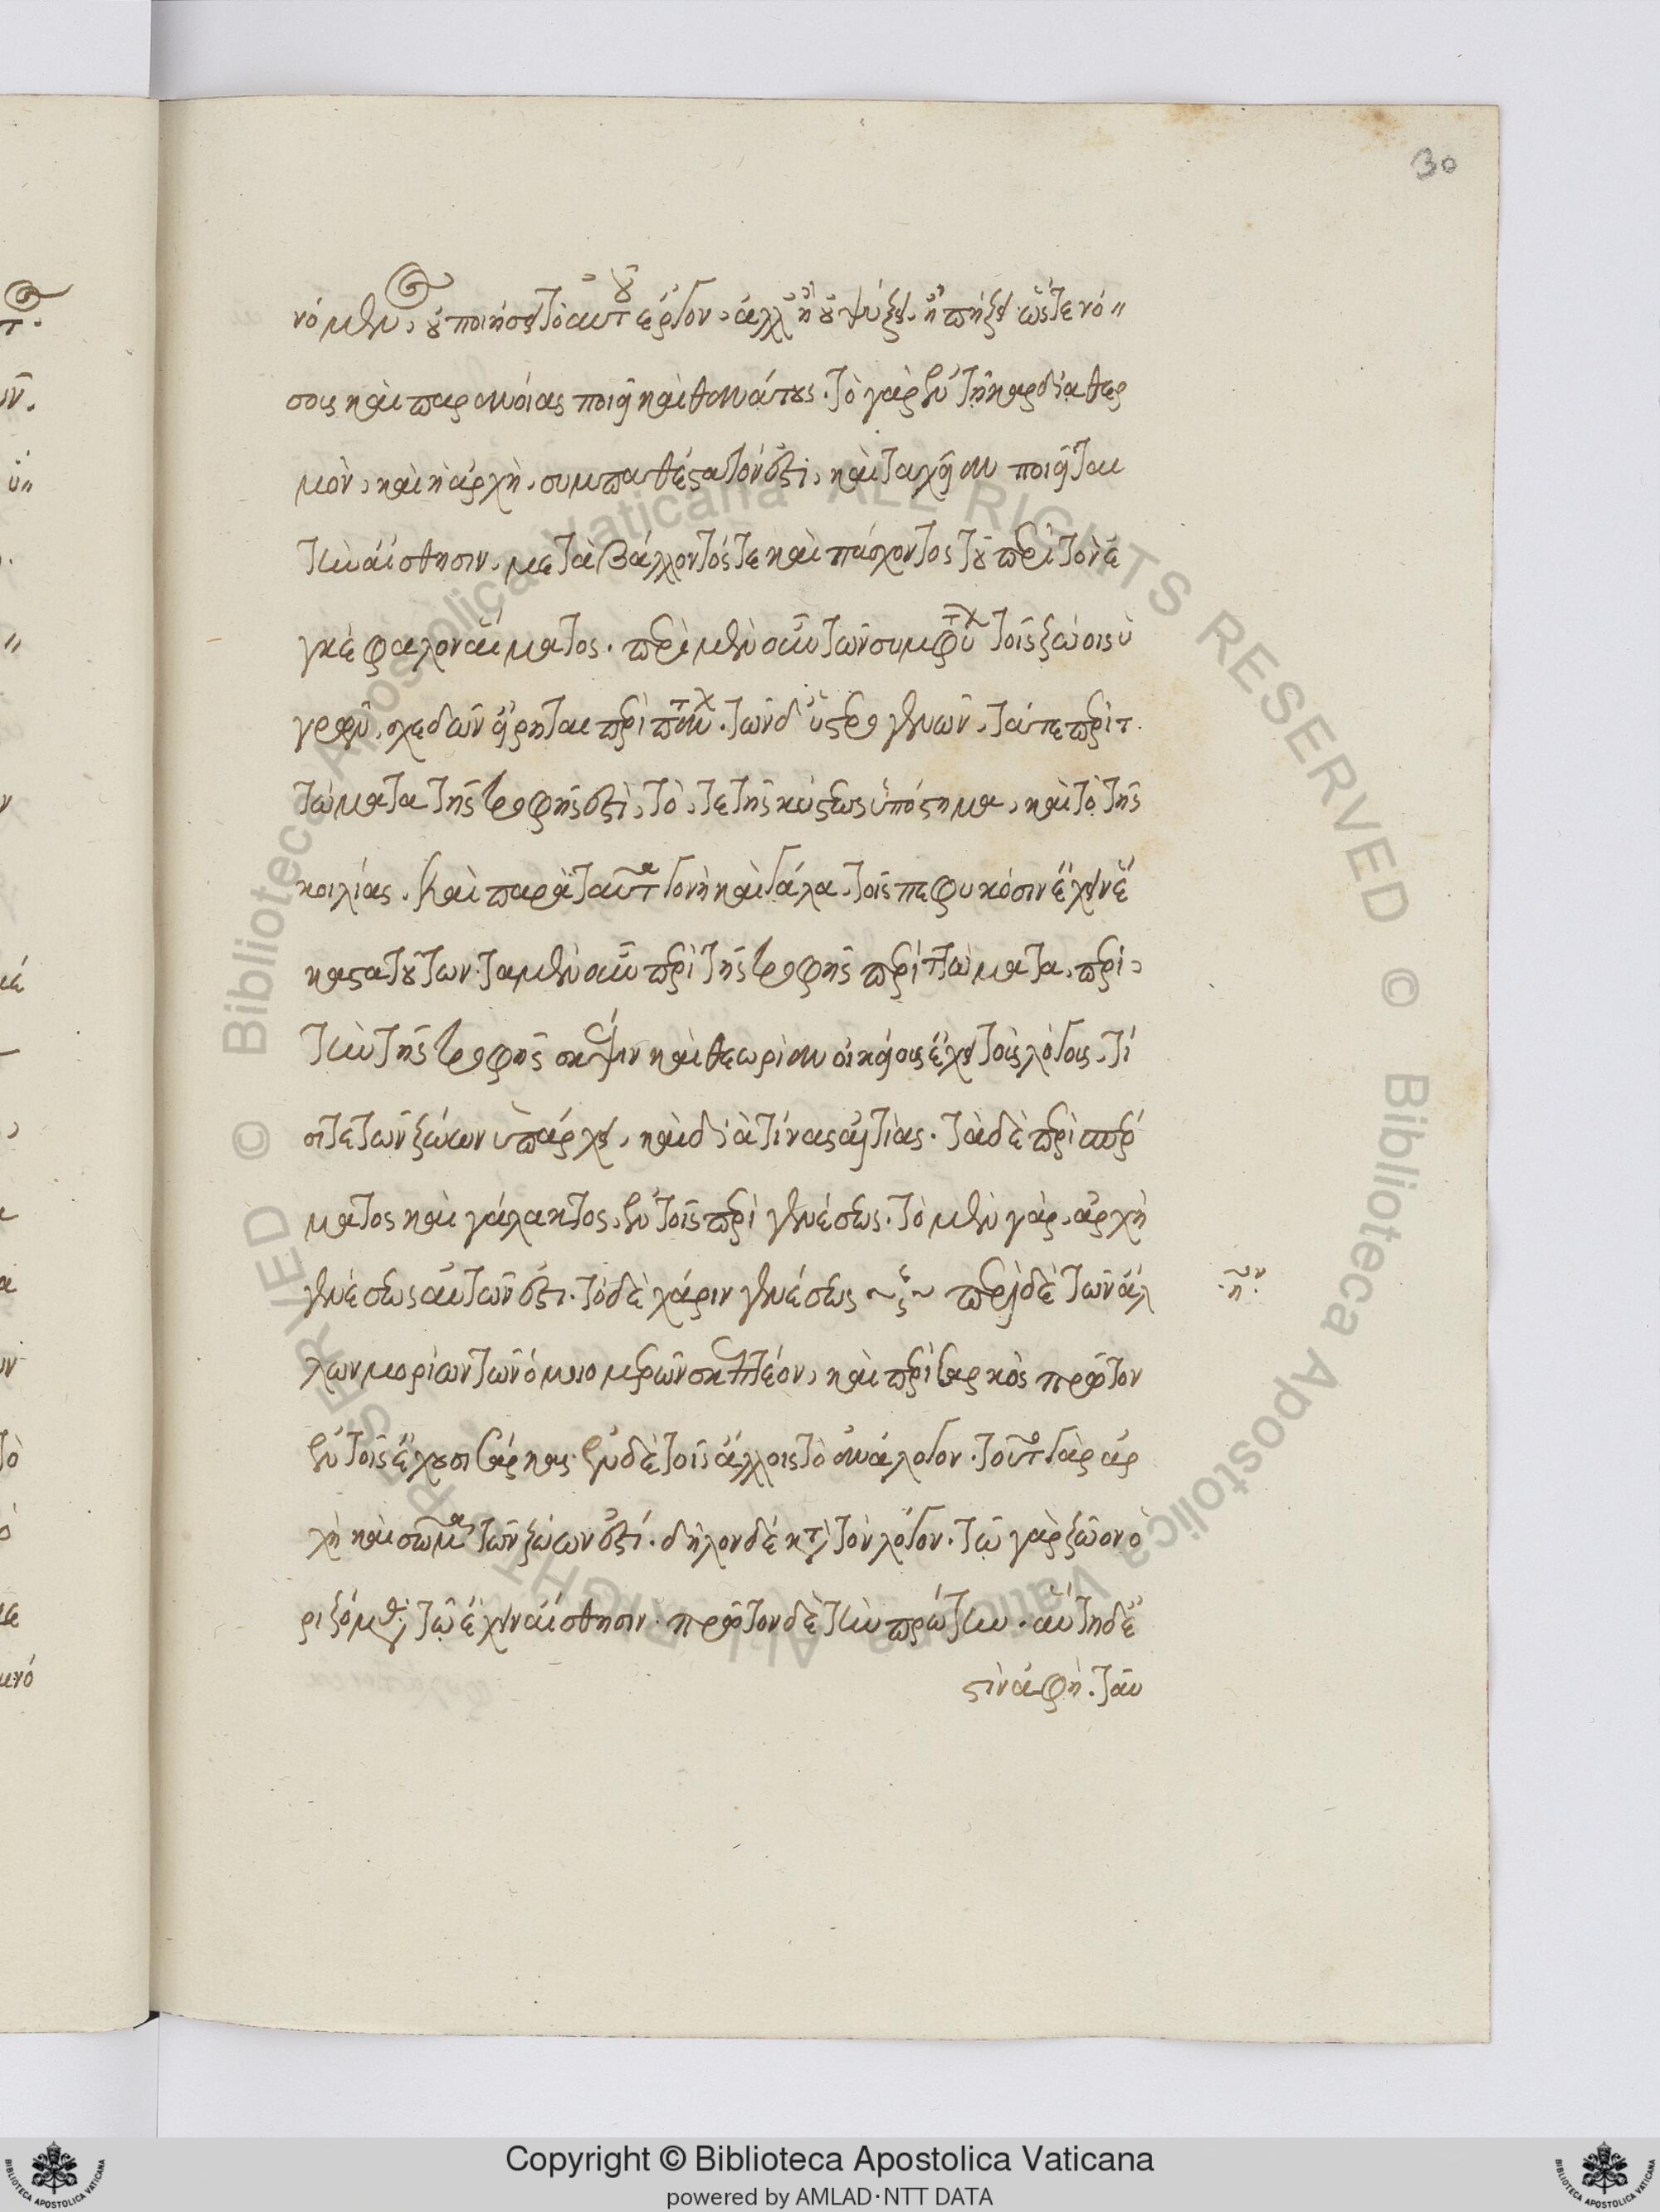 30
νόμενον, οὐ ποιήσει τὸ αὐτοῦ ἔργον. ἀλλ' ἢ οὐ ψύξει. ἢ πήξει. ὥστε νό
σους καὶ παρανοίας ποιεῖ καὶ θανάτους. τὸ γὰρ ἐν τῇ καρδίᾳ θερ
μὸν, καὶ ἡ ἀρχὴ, συμπαθέστατόν ἐστι, καὶ ταχεῖαν ποιεῖται
τὴν αἴσθησιν, μεταβάλλοντός τε καὶ πάσχοντος τοῦ περὶ τὸν ἐ
γκέφαλον αἵματος. περὶ μὲν οὖν τῶν συμφύτων τοῖς ζώοις ὑ
γρῶν, σχεδὸν εἴρηται περὶ πάντων. τῶν δ' ὑστερογενῶν, τά τε περιτ
τώματα τῆς τροφῆς ἐστὶ, τό, τε τῆς κύστεως ὑπόστημα, καὶ τὸ τῆς
κοιλίας. καὶ παρὰ ταῦτα γονὴ καὶ γάλα. τοῖς πεφυκόσιν ἔχειν ἕ
καστα τούτων. τὰ μὲν οὖν περὶ τῆς τροφῆς περιττώματα, περὶ
τὴν τῆς τροφῆς σκέψιν καὶ θεωρίαν οἰκείους ἔχει τοὺς λόγους, τί
σι τε τῶν ζώων ὑπάρχει, καὶ διὰ τίνας αἰτίας. τὰ δὲ περὶ σπέρ
ματος καὶ γάλακτος, ἐν τοῖς περὶ γενέσεως. τὸ μὲν γὰρ, ἀρχὴ
γενέσεως αὐτῶν ἐστι. τὸ δὲ χάριν γενέσεως ~ξ~ περὶ δὲ τῶν ἄλ
λων μορίων τῶν ὁμοιομερῶν σκεπτέον, καὶ περὶ σαρκὸς πρῶτον
ἐν τοῖς ἔχουσι σάρκας. ἐν δὲ τοῖς ἄλλοις τὸ ἀνάλογον. τοῦτο γὰρ ἀρ
χὴ καὶ σῶμα τῶν ζώων ἐστί. δῆλον δὲ κατὰ τὸν λόγον. τῶ γὰρ ζῶον ὁ
ριζόμεθα τῶ ἔχειν αἴσθησιν. πρῶτον δὲ τὴν πρώτην. αὕτη δέ
στιν ἁφή. ταύ